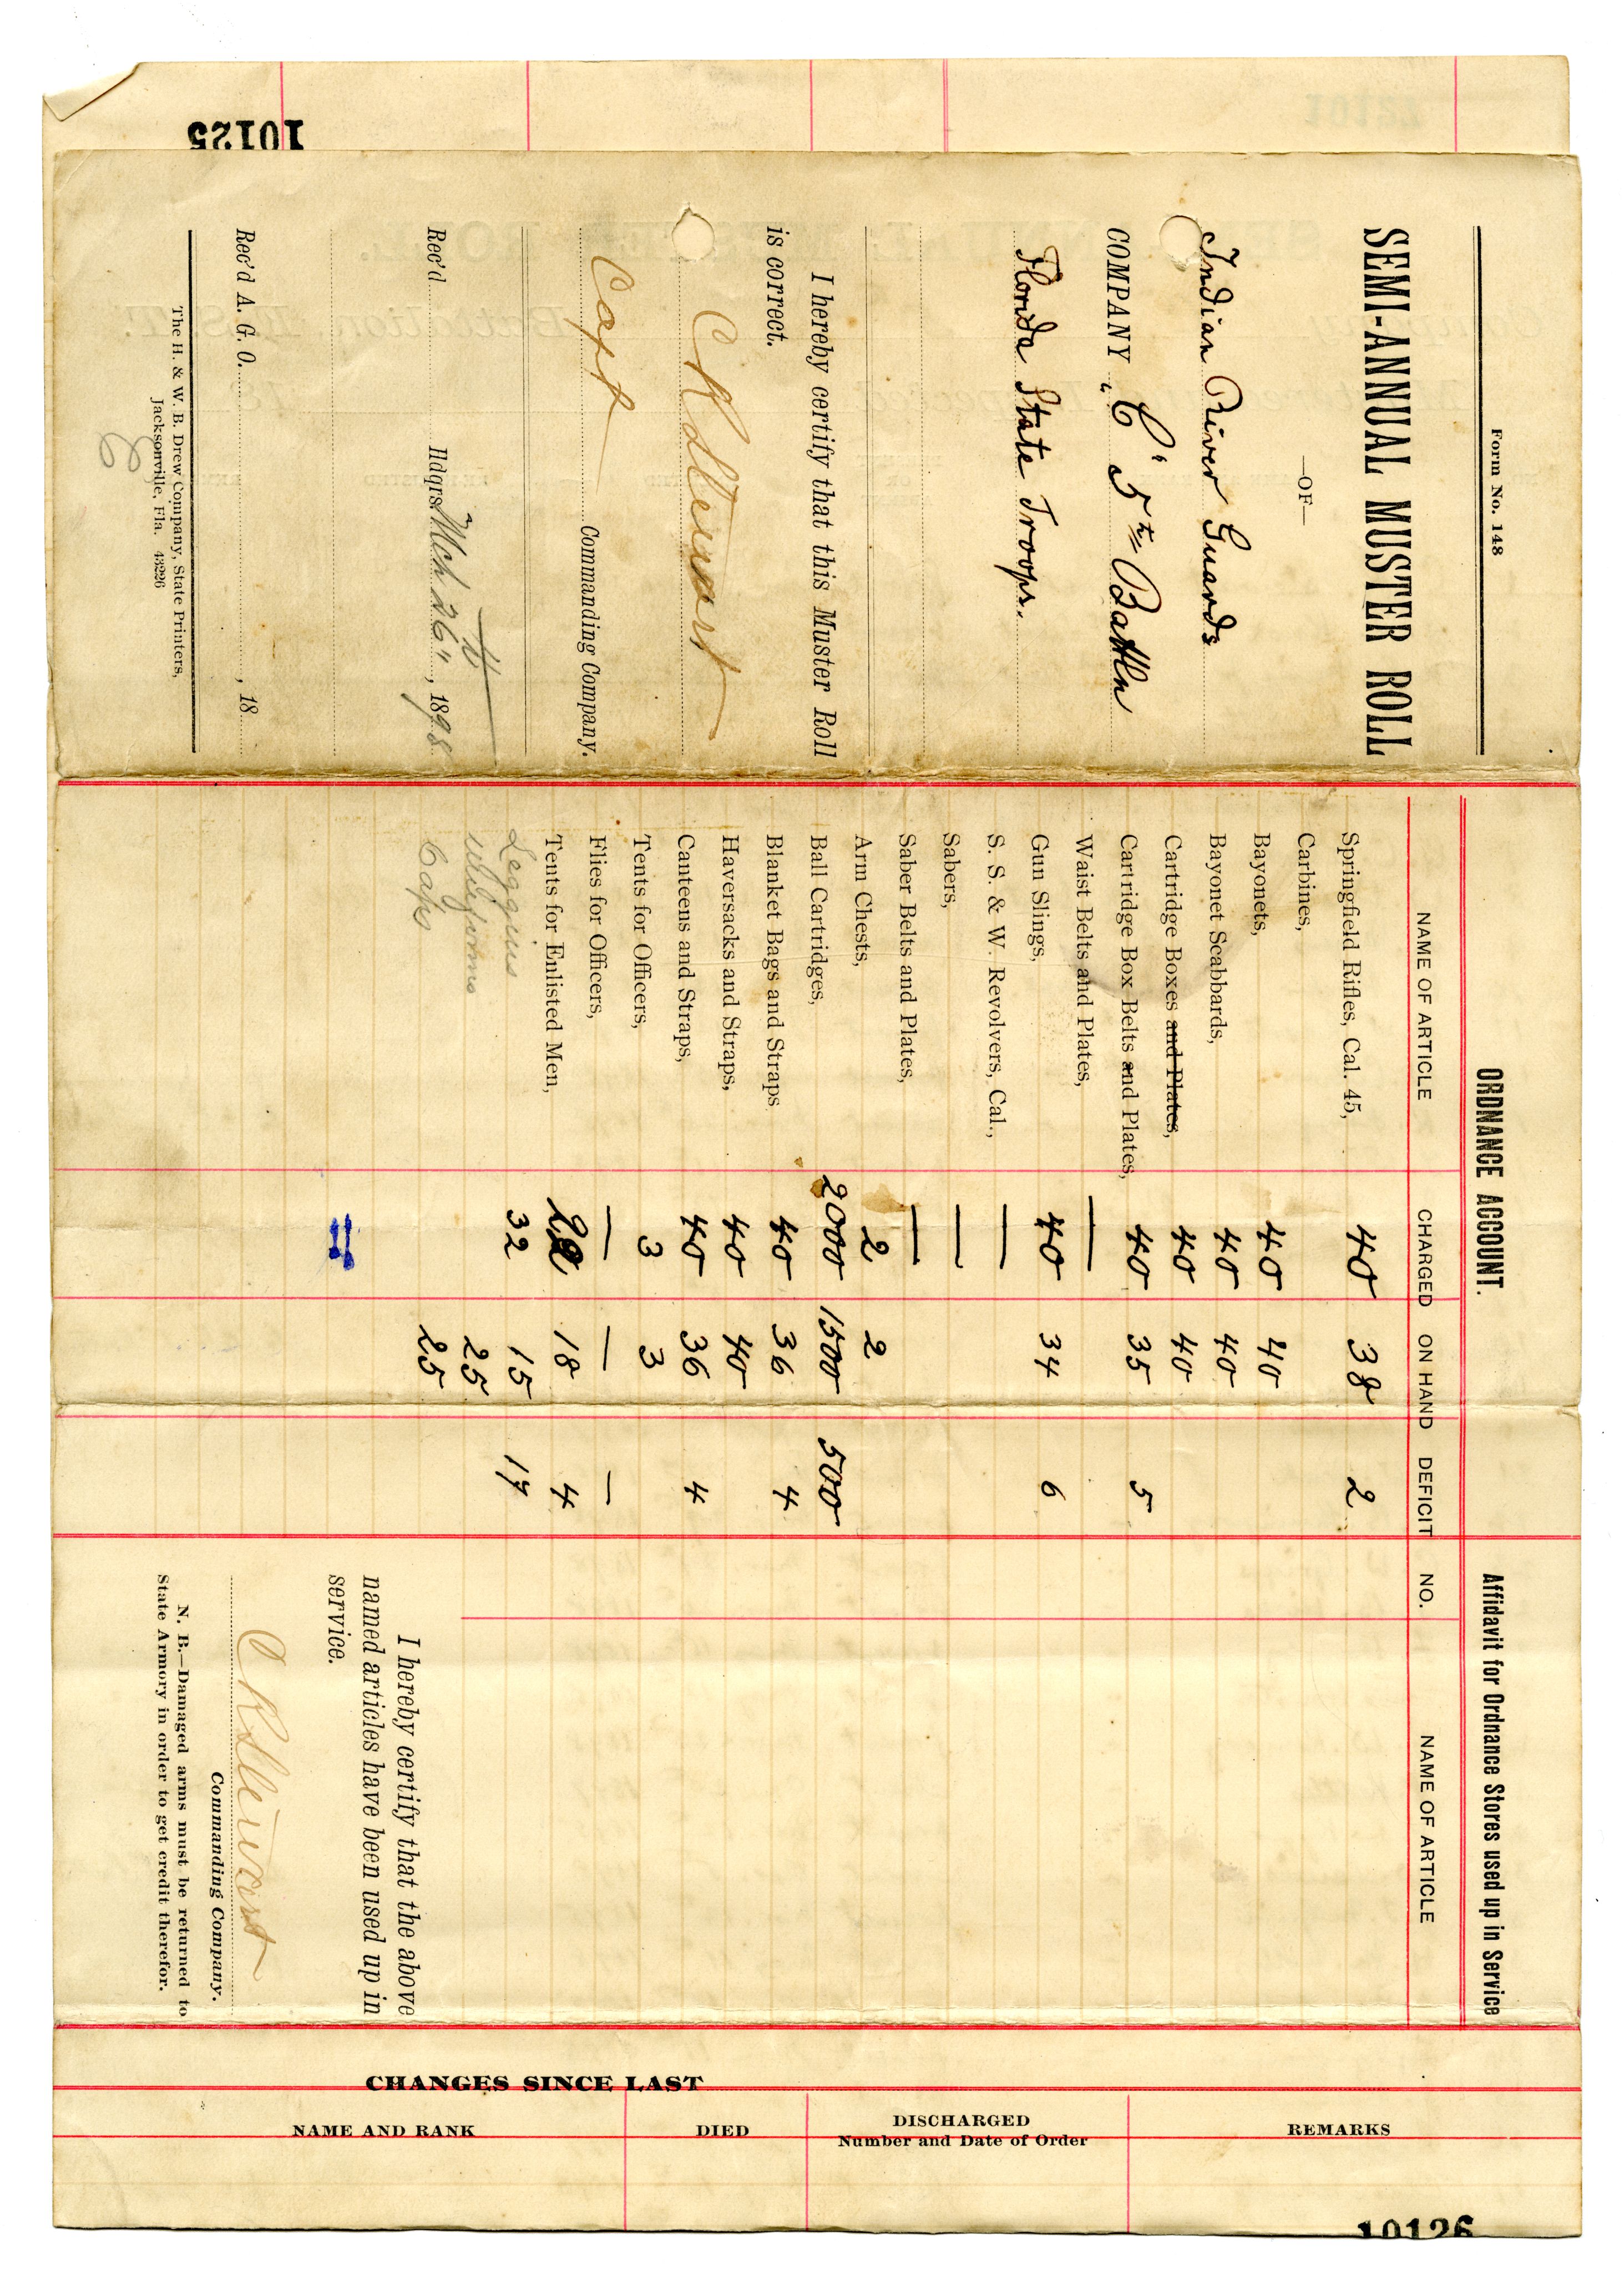 10125
Form No. 148
SEMI-ANNUAL MUSTER ROLL
—OF—
Indian River Guards
COMPANY "C" 5th Battln
Florida State Troops.
I hereby certify that this Muster Roll
is correct.
Capt
Commanding Company.
Rec'd Hdqrs Mch 26th, 1898
Rec'd A. G. O. , 18
The H. & W. B. Drew Company, State Printers,
Jacksonville, Fla. 43226
ORDNANCE ACCOUNT.
NAME OF ARTICLE CHARGED ON HAND DEFICIT
Springfield Rifles, Cal. 45, 40 38 2
Carbines,
Bayonets, 40 40
Bayonet Scabbards, 40 40
Cartridge Boxes and Plates, 40 40
Cartridge Box Belts and Plates, 40 35 5
Waist Belts and Plates, —
Gun Slings, 40 34 6
S. S. & W. Revolvers, Cal., —
Sabers, —
Saber Belts and Plates, —
Arm Chests, 2 2
Ball Cartridges, 2000 1500 500
Blanket Bags and Straps 40 36 4
Haversacks and Straps, 40 40
Canteens and Straps, 40 36 4
Tents for Officers, 3 3
Flies for Officers, — — —
Tents for Enlisted Men, 22 18 4
Leggins 32 15 17
Uniforms 25
Caps 25
Affidavit for Ordnance Stores used up in Service
NO. NAME OF ARTICLE
I hereby certify that the above
named articles have been used up in
service.
Commanding Company.
N. B.—Damaged arms must be returned to
State Armory in order to get credit therefor.
CHANGES SINCE LAST
NAME AND RANK DIED DISCHARGED REMARKS
Number and Date of Order
10126